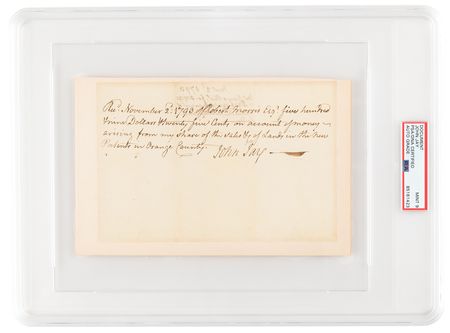 Rec.d November 2.d 1793 of Robert Morris Esq.r five hundred
Nine Dollars & twenty five Cents on account of money
arising from my Share of the Sales of Lands in the
Patents in Orange County. John Jay
DOCUMENT
JOHN JAY
PSA/DNA CERTIFIED
AUTO GRADE
MINT 9
85181423